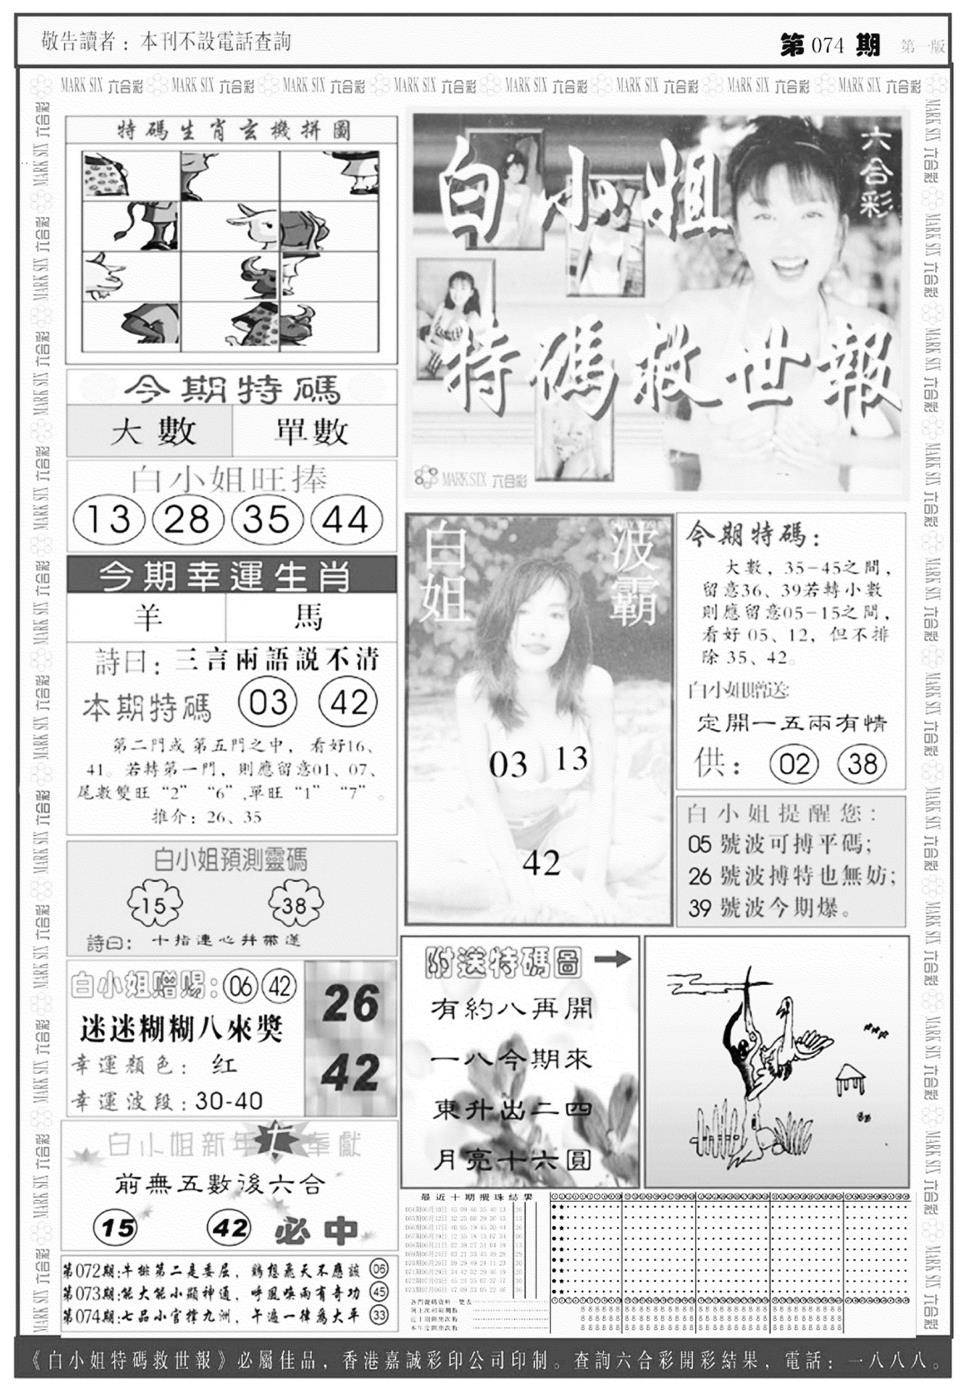 敬告讀者：本刊不設電話查詢
第074期 第一版
MARK SIX 六合彩 MARK SIX 六合彩 MARK SIX 六合彩 MARK SIX 六合彩 MARK SIX 六合彩 MARK SIX 六合彩 MARK SIX 六合彩 MARK SIX 六合彩
特碼生肖玄機拼圖
今期特碼
大數 單數
白小姐旺捧
13 28 35 44
今期幸運生肖
羊 馬
詩曰：三言兩語説不清
本期特碼 03 42
第二門或第五門之中，看好16、
41。若轉第一門，則應留意01、07、
尾數雙旺“2” “6”,單旺“1” “7”。
推介：26、35
白小姐預測靈碼
15 38
詩曰：十指連心并蒂蓮
白小姐贈賜：06 42
迷迷糊糊八來獎
幸運顏色：红
幸運波段：30-40
26
42
白小姐新年七奉獻
前無五數後六合
15 42 必中
第072期:牛排第二是委屈，鷄想飛天不應該 06
第073期:能大能小顯神通，呼風喚雨有奇功 45
第074期:七品小官擇九洲，午遍一律爲太平 33
白小姐
六合彩
特碼救世報
MARK SIX 六合彩
白姐
波霸
03 13
42
今期特碼：
大數，35-45之間，
留意36、39若轉小數
則應留意05-15之間，
看好 05、12，但不排
除 35、42。
白小姐贈送:
定開一五兩有情
供： 02 38
白小姐提醒您：
05 號波可搏平碼；
26 號波搏特也無妨；
39 號波今期爆。
附送特碼圖
有約八再開
一八今期來
東升出二四
月亮十六圓
最近十期攪珠結果
《白小姐特碼救世報》必屬佳品，香港嘉誠彩印公司印制。查詢六合彩開彩結果，電話：一八八八。